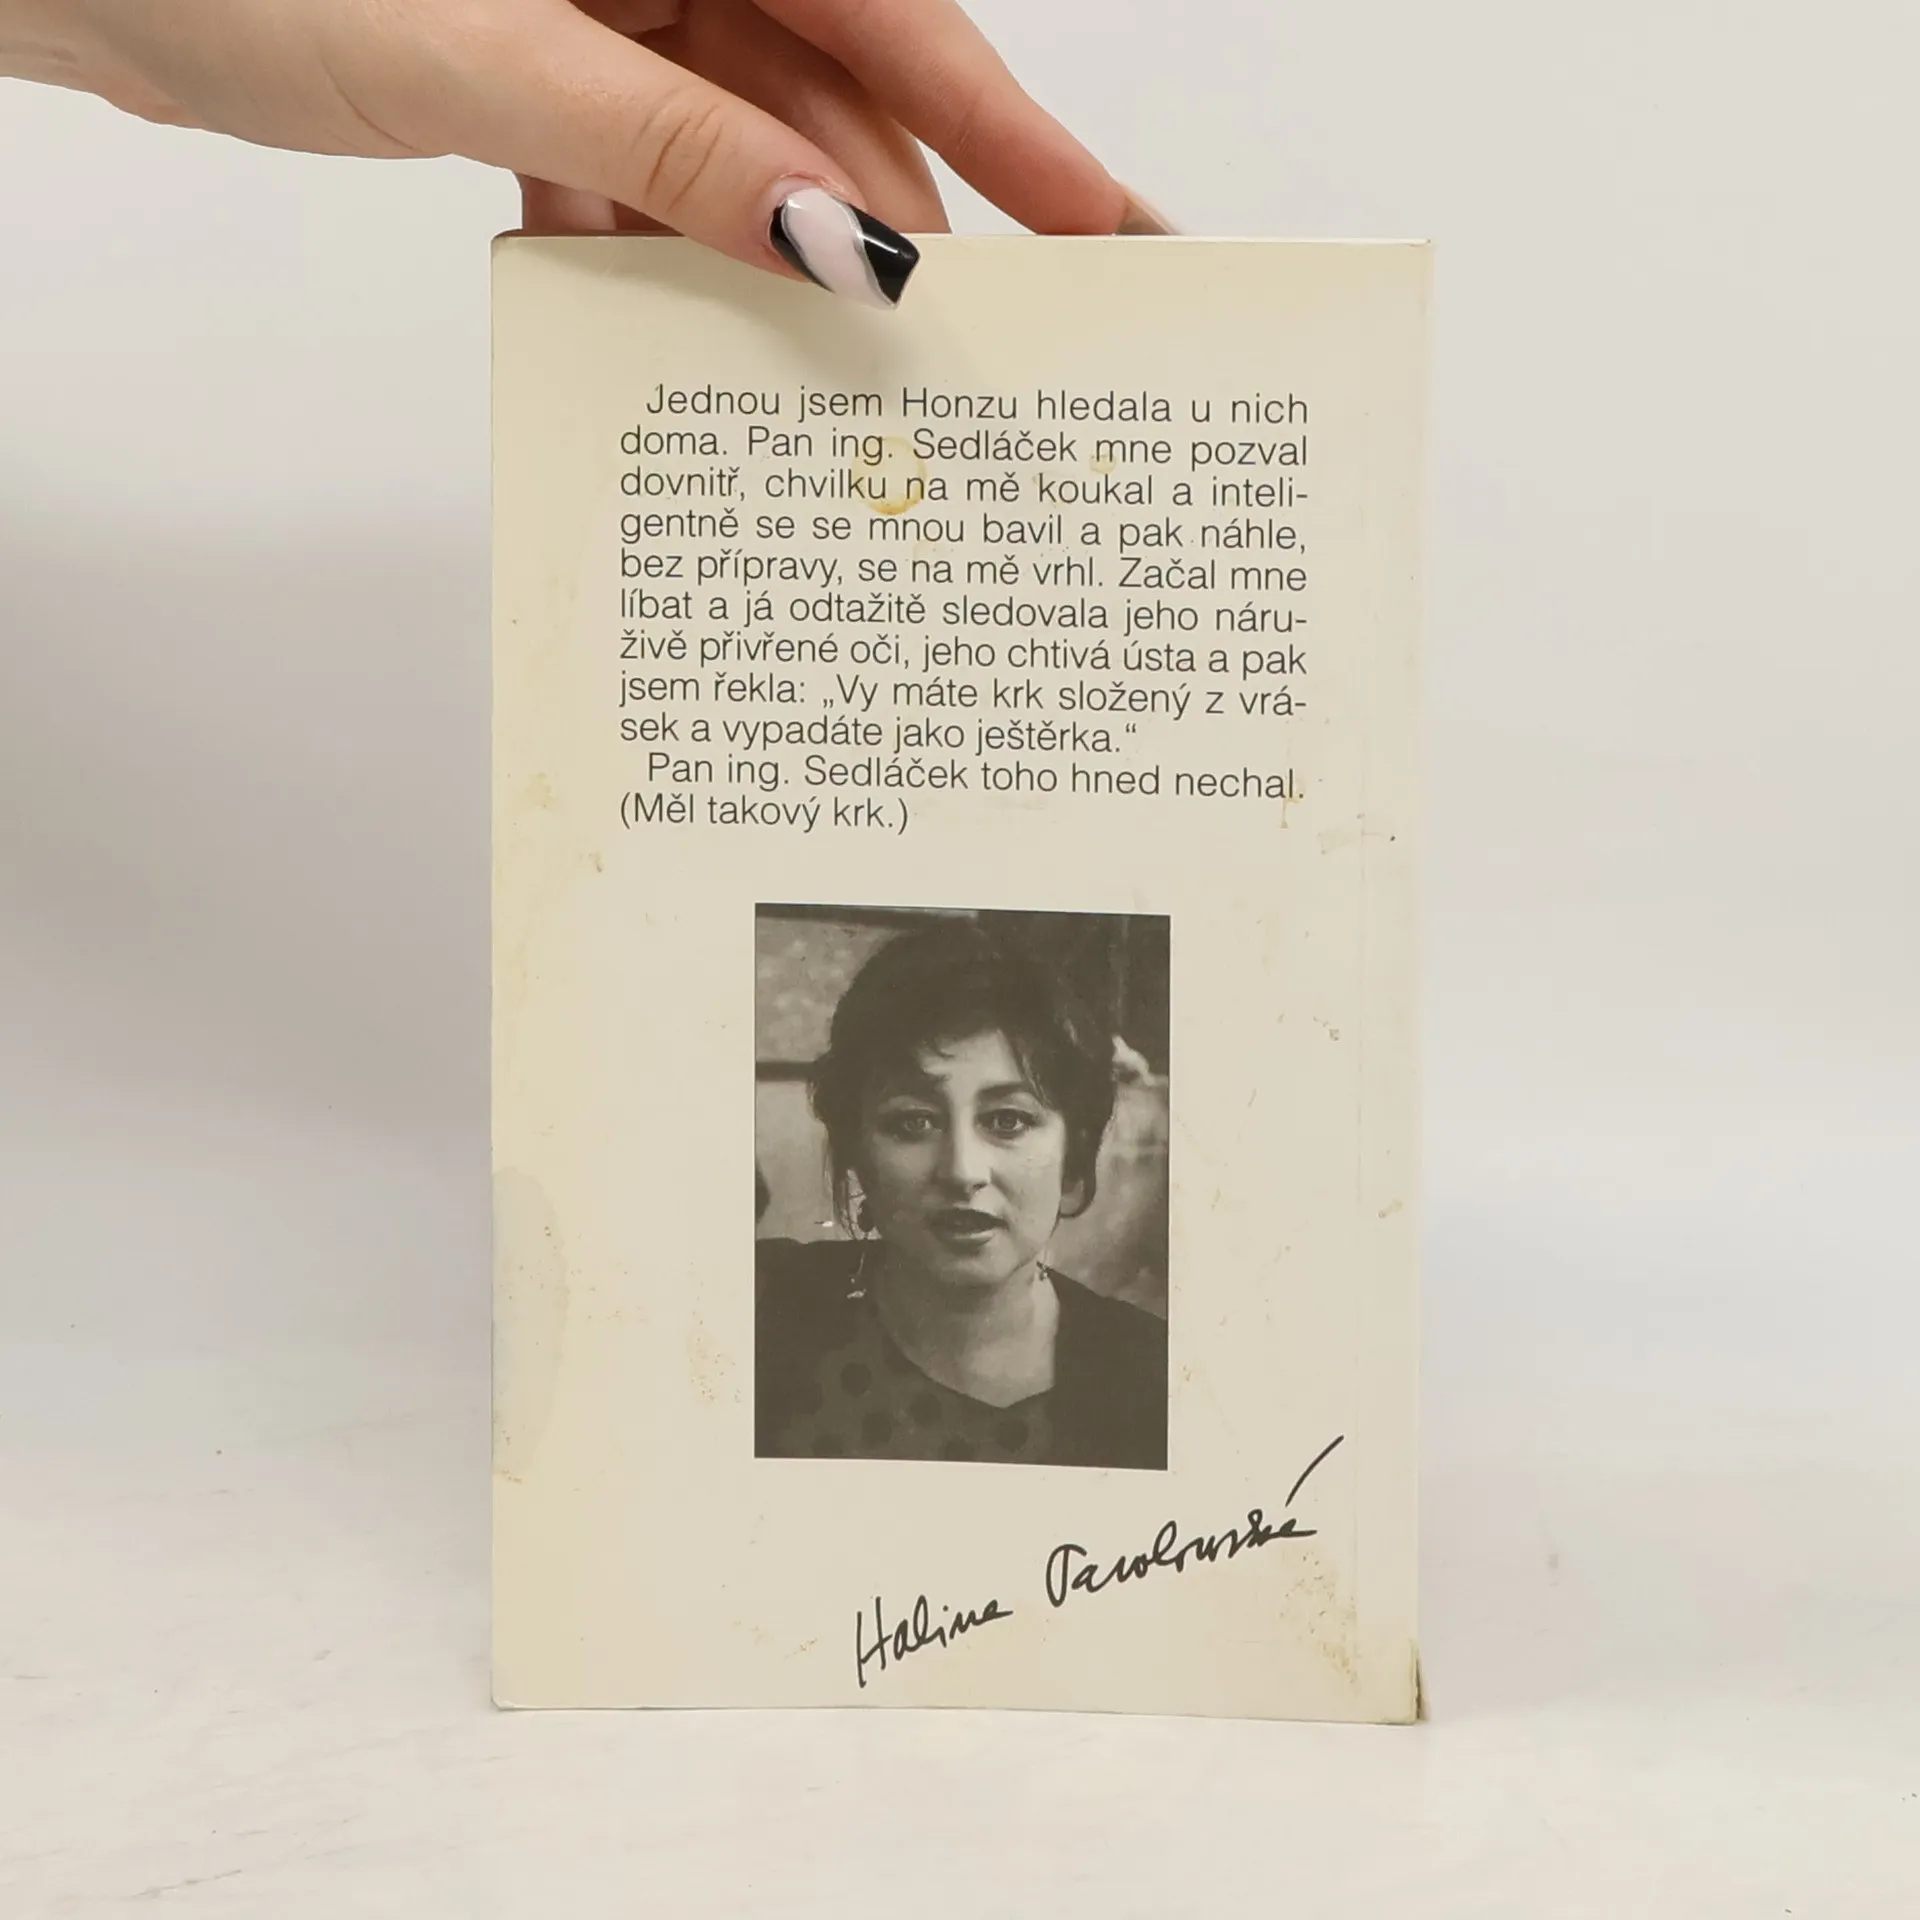 Jednou jsem Honzu hledala u nich
doma. Pan ing. Sedláček mne pozval
dovnitř, chvilku na mě koukal a inteli-
gentně se se mnou bavil a pak náhle,
bez přípravy, se na mě vrhl. Začal mne
líbat a já odtažitě sledovala jeho náru-
živě přivřené oči, jeho chtivá ústa a pak
jsem řekla: „Vy máte krk složený z vrá-
sek a vypadáte jako ještěrka.“
Pan ing. Sedláček toho hned nechal.
(Měl takový krk.)
Halina Pawlowská